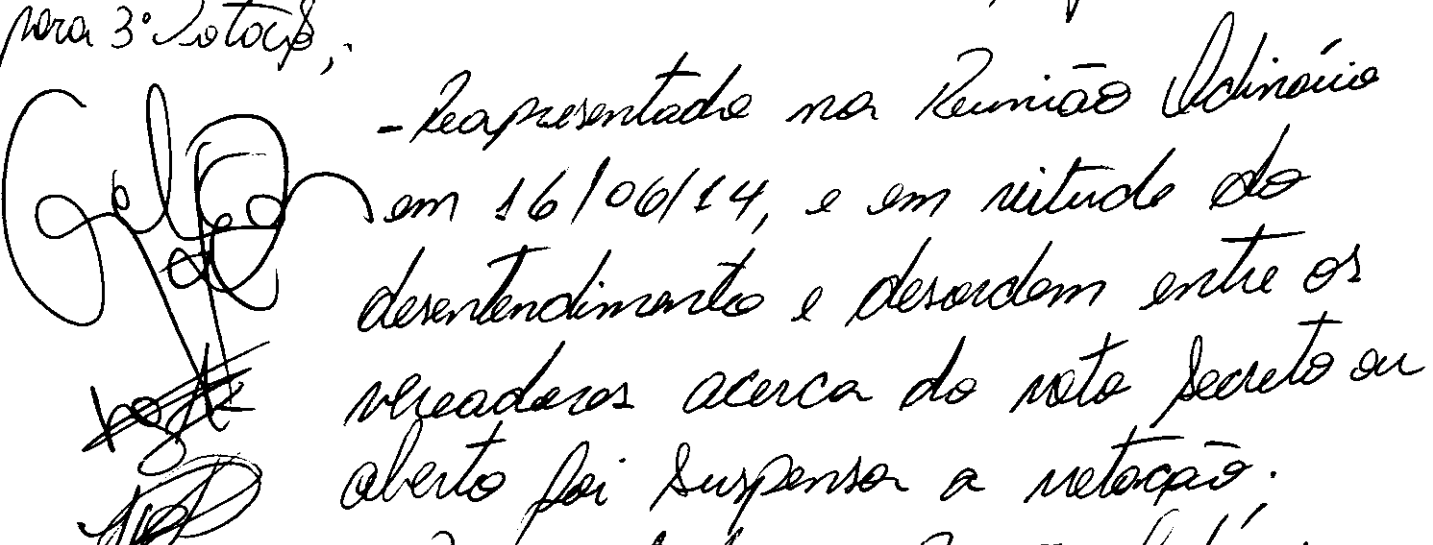 para 3ª Votação;
- Reapresentado na Reunião Ordinária
em 16/06/14, e em virtude do
desentendimento e desordem entre os
vereadores acerca do voto secreto ou
aberto foi suspensa a votação.